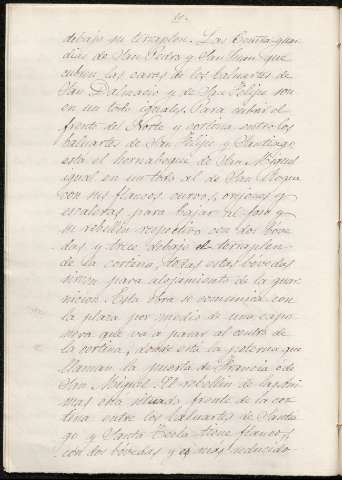 10.
debajo su terraplen. Las Contra-guar-
dias de San Pedro y San Juan que
cubren las caras de los baluartes de
San Dalmacio y de San Felipe son
en un todo iguales. Para cubrir el
frente del Norte y cortina entre los
baluartes de San Felipe y Santiago
está el hornabeque de San Miguel
igual en un todo al de San Roque
con sus flancos curvos, orejones y
escaleras para bajar al foso y
su rebellin respectivo con dos bóve-
das y trece debajo el terraplen
de la cortina, todas estas bóvedas
sirven para alojamiento de la guar-
nicion. Esta obra se comunica con
la plaza por medio de una capo-
nera que va a parar al centro de
la cortina, donde está la poterna que
llaman la puerta de Francia ó de
San Miguel. El rebellin de las áni-
mas está situado frente de la cor-
tina entre los baluartes de Santia-
go y Santa Tecla tiene flancos,
con dos bóvedas y es mas reducido